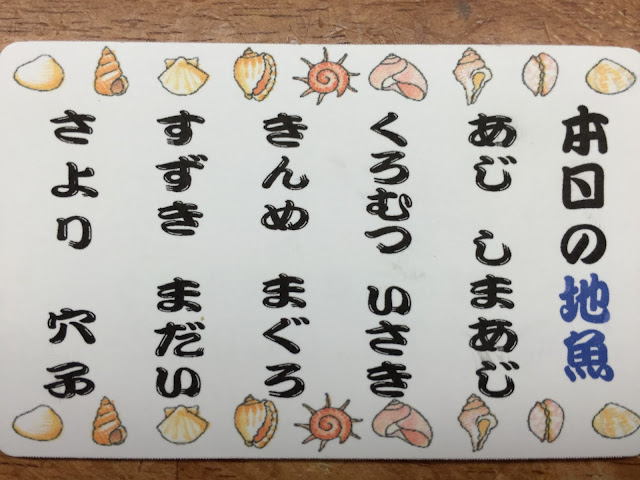 本日の地魚
あじ しまあじ
くろむつ いさき
きんめ まぐろ
すずき まだい
さより 穴子